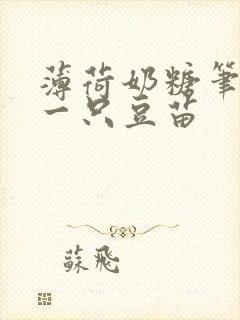 薄荷奶糖笔
一只豆苗
蘇飛